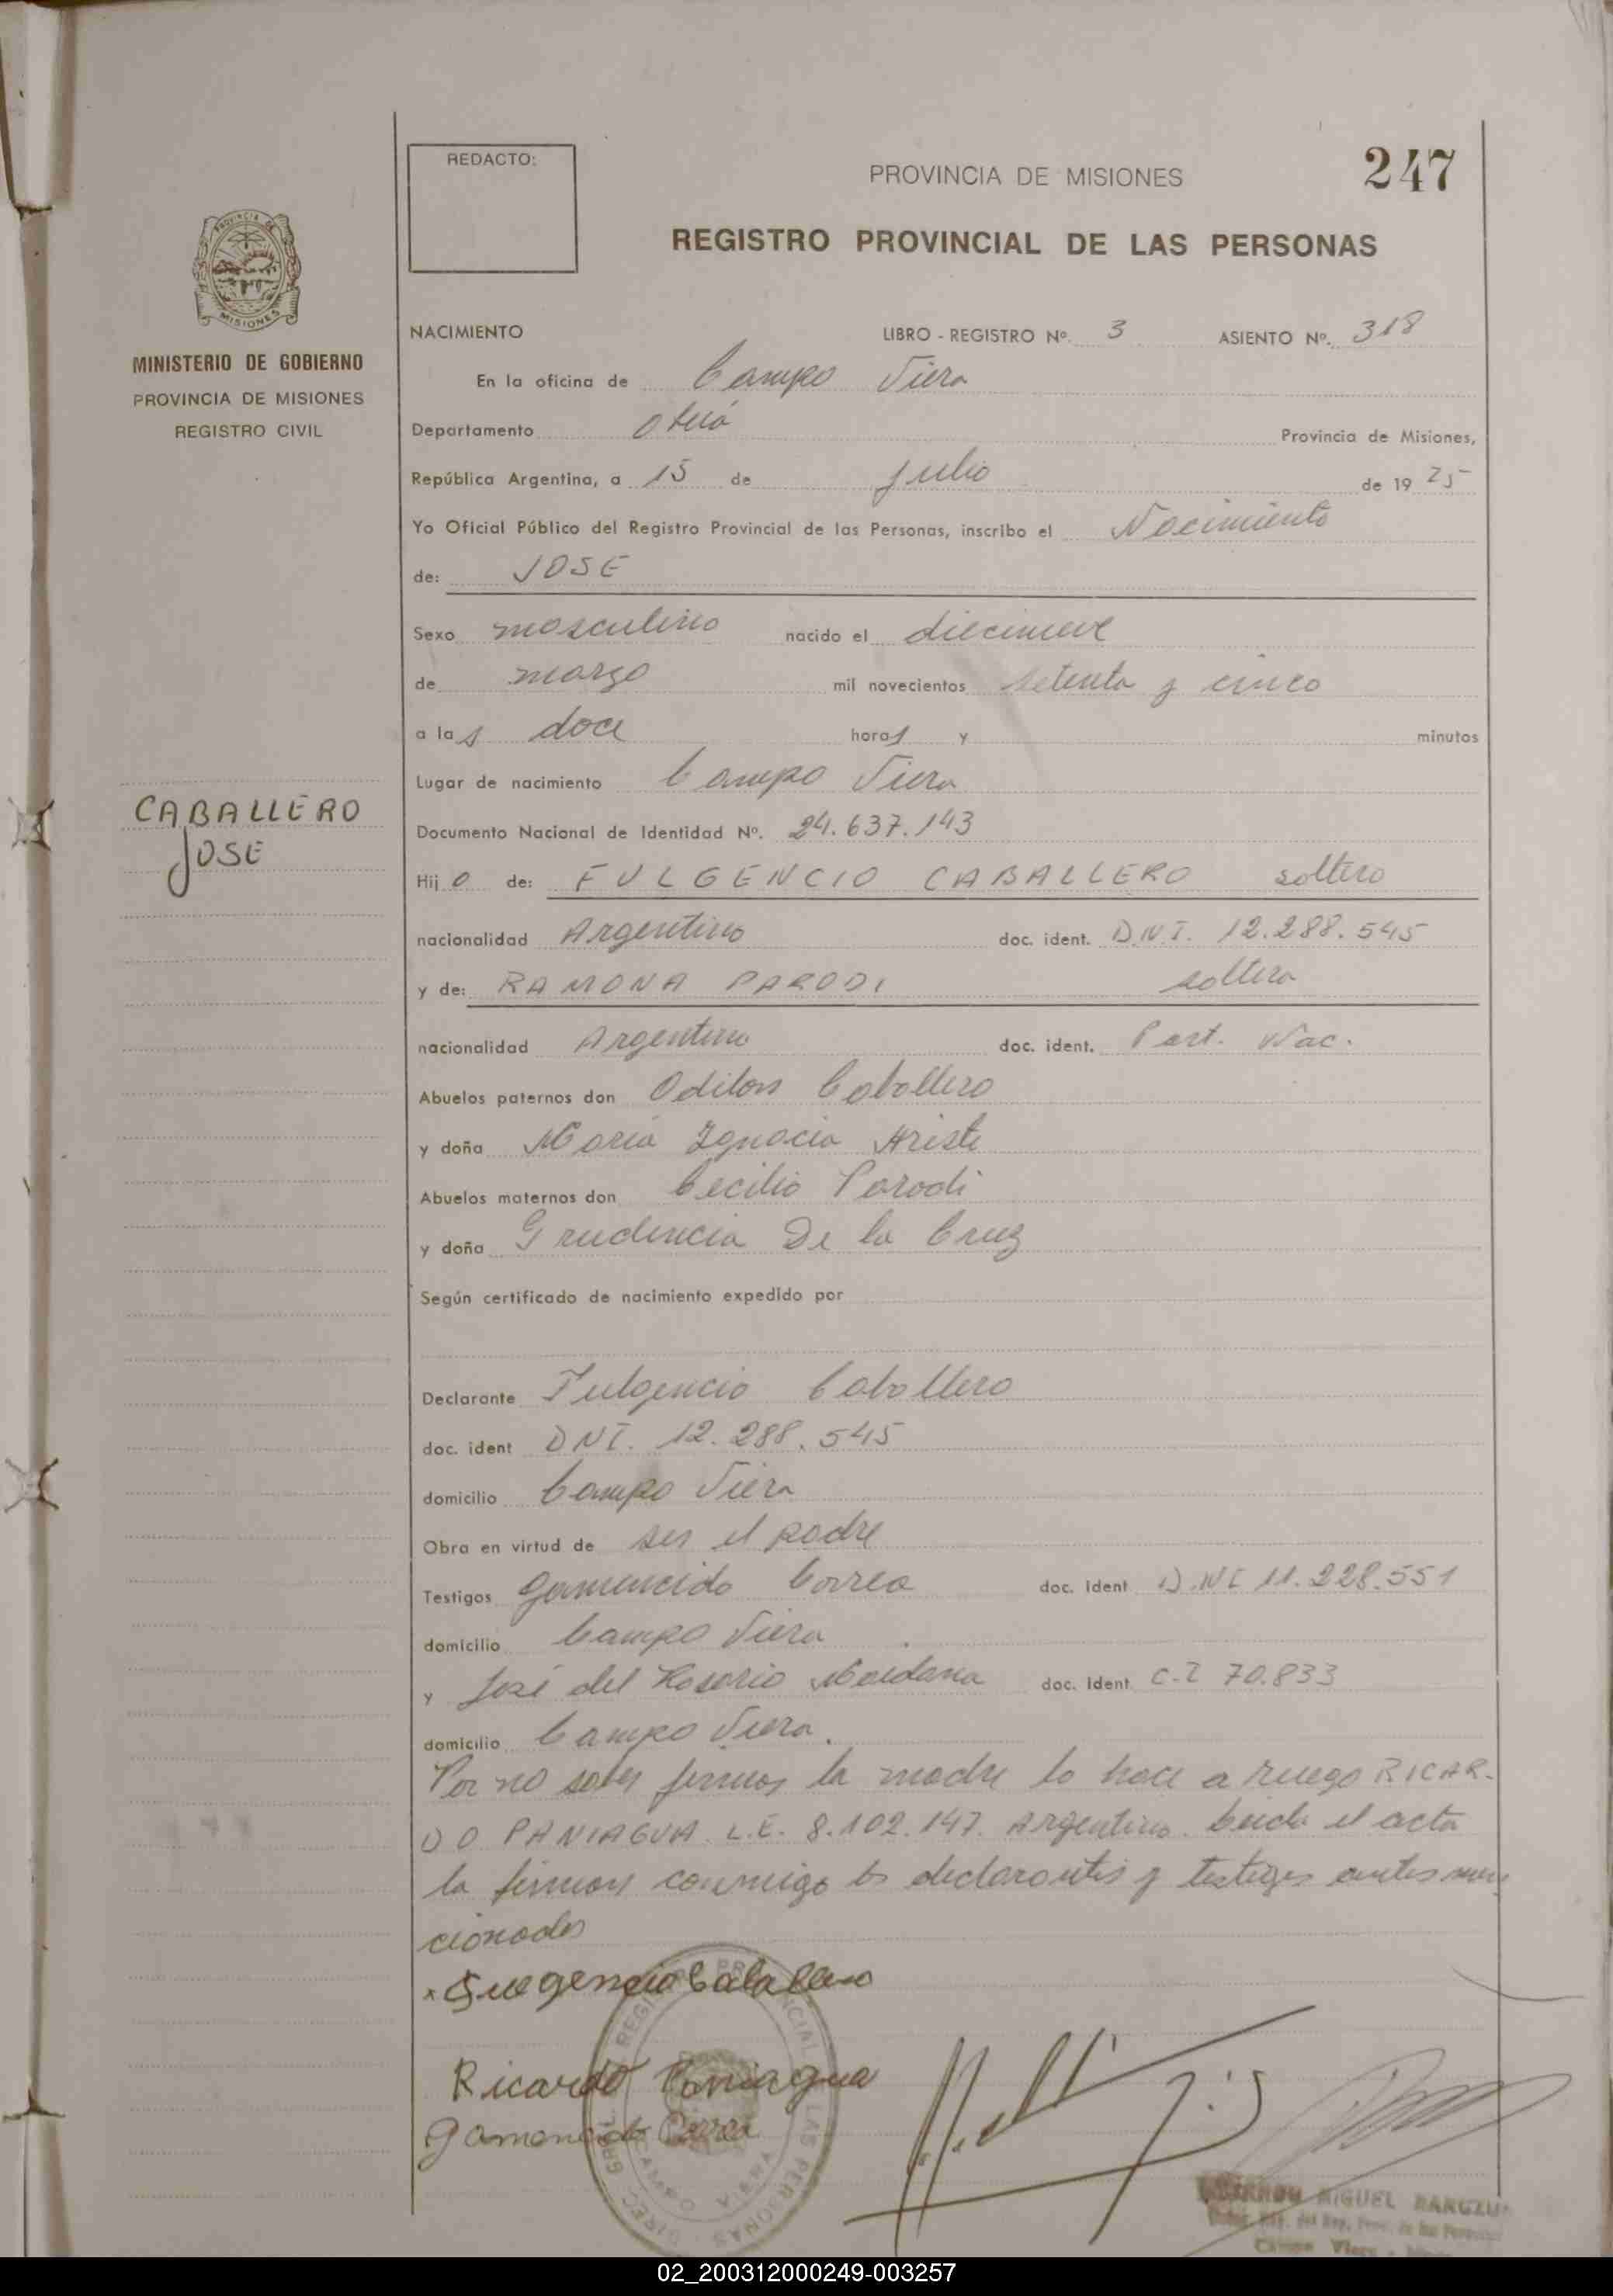 REDACTO:
PROVINCIA DE MISIONES
247
REGISTRO PROVINCIAL DE LAS PERSONAS
PROVINCIA DE
MISIONES
MINISTERIO DE GOBIERNO
PROVINCIA DE MISIONES
REGISTRO CIVIL
CABALLERO
JOSE
NACIMIENTO LIBRO - REGISTRO Nº. 3 ASIENTO Nº. 318
En la oficina de Campo Viera
Departamento Oberá Provincia de Misiones,
República Argentina, a 15 de Julio de 19 75
Yo Oficial Público del Registro Provincial de las Personas, inscribo el Nacimiento
de: JOSE
Sexo masculino nacido el diecinueve
de marzo mil novecientos setenta y cinco
a las doce horas y minutos
Lugar de nacimiento Campo Viera
Documento Nacional de Identidad Nº. 24.637.143
Hijo de: FULGENCIO CABALLERO soltero
nacionalidad Argentino doc. ident. D.N.I. 12.288.545
y de: RAMONA PARODI soltera
nacionalidad Argentina doc. ident. Part. Nac.
Abuelos paternos don Odilon Caballero
y doña Maria Ignacia Ariste
Abuelos maternos don Cecilio Parodi
y doña Prudencia De la Cruz
Según certificado de nacimiento expedido por
Declarante Fulgencio Caballero
doc. ident DNI. 12.288.545
domicilio Campo Viera
Obra en virtud de ser el padre
Testigos Gamencido Correa doc. Ident D.NI 11.228.551
domicilio Campo Viera
y José del Rosario Maidana doc. Ident C.I 70.833
domicilio Campo Viera.
Por no saber firmar la madre lo hace a ruego RICAR-
DO PANIAGUA. L.E. 8.102.147. Argentino. Leida el acta
la firman conmigo los declarantes y testigos antes men
cionados
x Fulgencio Caballero
Ricardo Paniagua
Gamencido Correa
MIGUEL
02_200312000249-003257